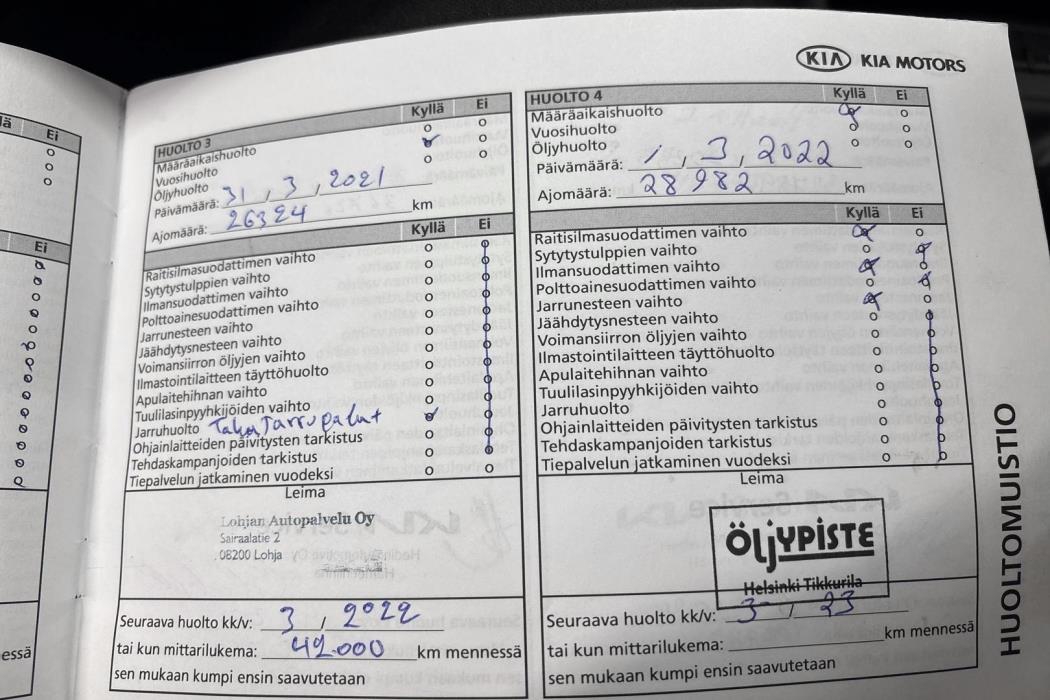 KIA KIA MOTORS
lä Ei
Ei
essä
HUOLTO 3 Kyllä Ei
Määräaikaishuolto
Vuosihuolto
Öljyhuolto
Päivämäärä: 31, 3, 2021
Ajomäärä: 26324 km
Kyllä Ei
Raitisilmasuodattimen vaihto
Sytytystulppien vaihto
Ilmansuodattimen vaihto
Polttoainesuodattimen vaihto
Jarrunesteen vaihto
Jäähdytysnesteen vaihto
Voimansiirron öljyjen vaihto
Ilmastointilaitteen täyttöhuolto
Apulaitehihnan vaihto
Tuulilasinpyyhkijöiden vaihto
Jarruhuolto TakaJarrupalat
Ohjainlaitteiden päivitysten tarkistus
Tehdaskampanjoiden tarkistus
Tiepalvelun jatkaminen vuodeksi
Leima
Lohjan Autopalvelu Oy
Sairaalatie 2
08200 Lohja
Seuraava huolto kk/v: 3, 2022
tai kun mittarilukema: 42.000 km mennessä
sen mukaan kumpi ensin saavutetaan
HUOLTO 4 Kyllä Ei
Määräaikaishuolto
Vuosihuolto
Öljyhuolto
Päivämäärä: 1, 3, 2022
Ajomäärä: 28982 km
Kyllä Ei
Raitisilmasuodattimen vaihto
Sytytystulppien vaihto
Ilmansuodattimen vaihto
Polttoainesuodattimen vaihto
Jarrunesteen vaihto
Jäähdytysnesteen vaihto
Voimansiirron öljyjen vaihto
Ilmastointilaitteen täyttöhuolto
Apulaitehihnan vaihto
Tuulilasinpyyhkijöiden vaihto
Jarruhuolto
Ohjainlaitteiden päivitysten tarkistus
Tehdaskampanjoiden tarkistus
Tiepalvelun jatkaminen vuodeksi
Leima
ÖljYPISTE
Helsinki Tikkurila
Seuraava huolto kk/v: 3, 23
tai kun mittarilukema: km mennessä
sen mukaan kumpi ensin saavutetaan
HUOLTOMUISTIO